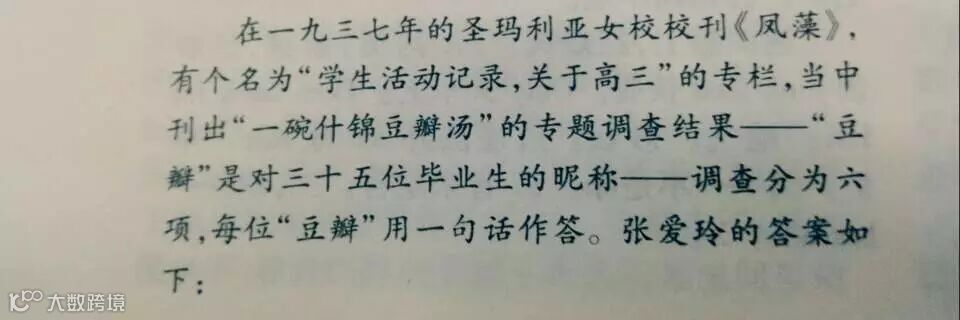 在一九三七年的圣玛利亚女校校刊《凤藻》，
有个名为“学生活动记录，关于高三”的专栏，当中
刊出“一碗什锦豆瓣汤”的专题调查结果——“豆
瓣”是对三十五位毕业生的昵称——调查分为六
项，每位“豆瓣”用一句话作答。张爱玲的答案如
下：
大数跨境